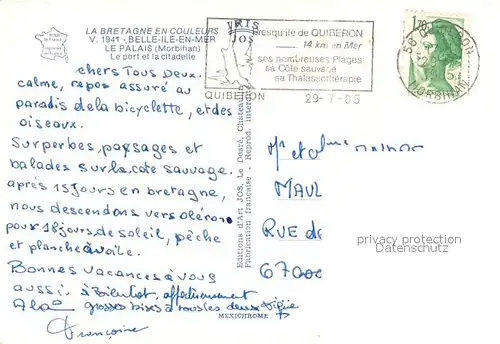 LA BRETAGNE EN COULEURS
V. 1941 - BELLE-ILE-EN-MER
LE PALAIS (Morbihan)
Le port et la citadelle
chers Tous Deux.
calme, repos assuré au
paradis de la bicyclette, et des
oiseaux.
Superbes paysages et
balades sur la cote sauvage.
après 15 jours en bretagne,
nous descendons vers oléron
pour 18 jours de soleil, pêche
et planche à voile.
Bonnes vacances à vous
aussi. à Bientot. affectueusement
grosses bises à tous les deux
Françoise
MEXICHROME
Editions d'Art JOS, Le Doaré, Chateaulin
Fabrication française - Reprod. interdite
Presqu'ile de QUIBERON
14 km en Mer
ses nombreuses Plages
sa Côte sauvage
sa Thalassothérapie
QUIBERON
29-7-85
MORBIHAN
Mr et Mme
MAUL
RUE de
67000
privacy protection
Datenschutz